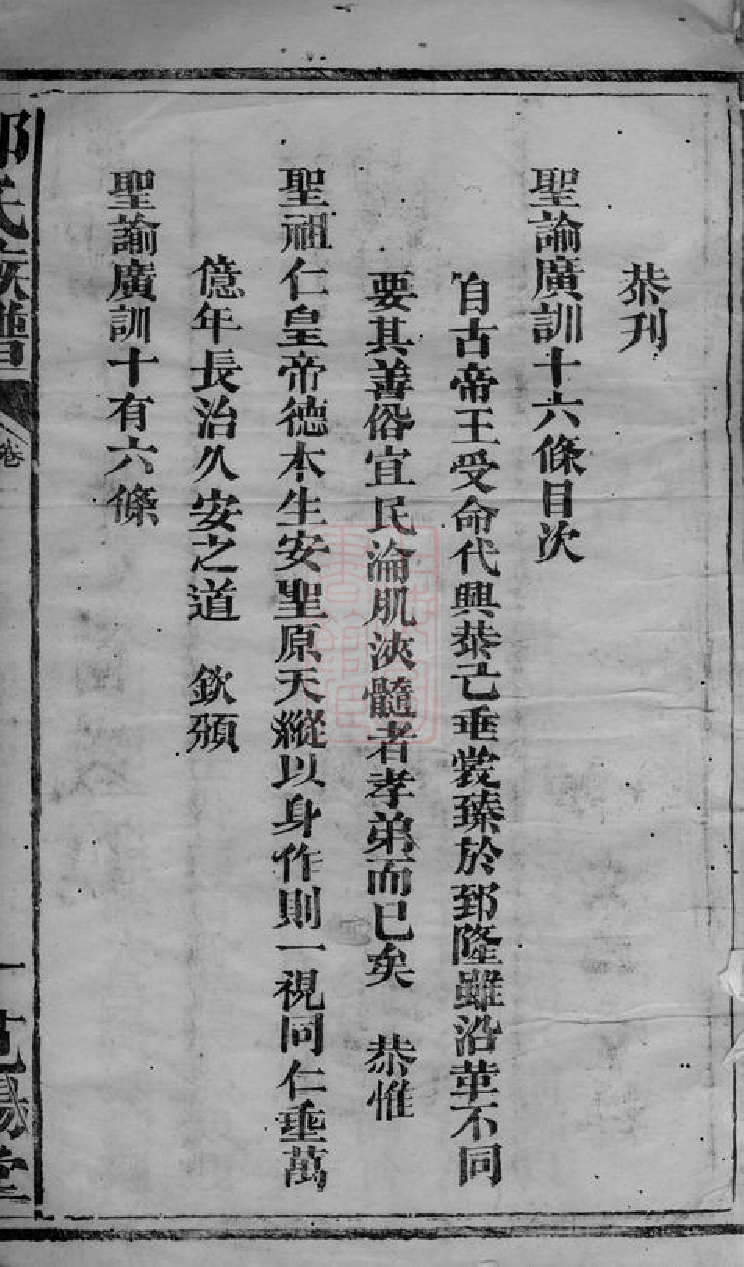 恭刋
聖諭廣訓十六條目次
自古帝王受命代興恭己垂裳臻於郅隆雖沿革不同
要其善俗宜民淪肌浹髓者孝弟而已矣 恭惟
聖祖仁皇帝德本生安聖原天縱以身作則一視同仁垂萬
億年長治久安之道 欽頒
聖諭廣訓十有六條
氏族譜
卷
一
陽堂